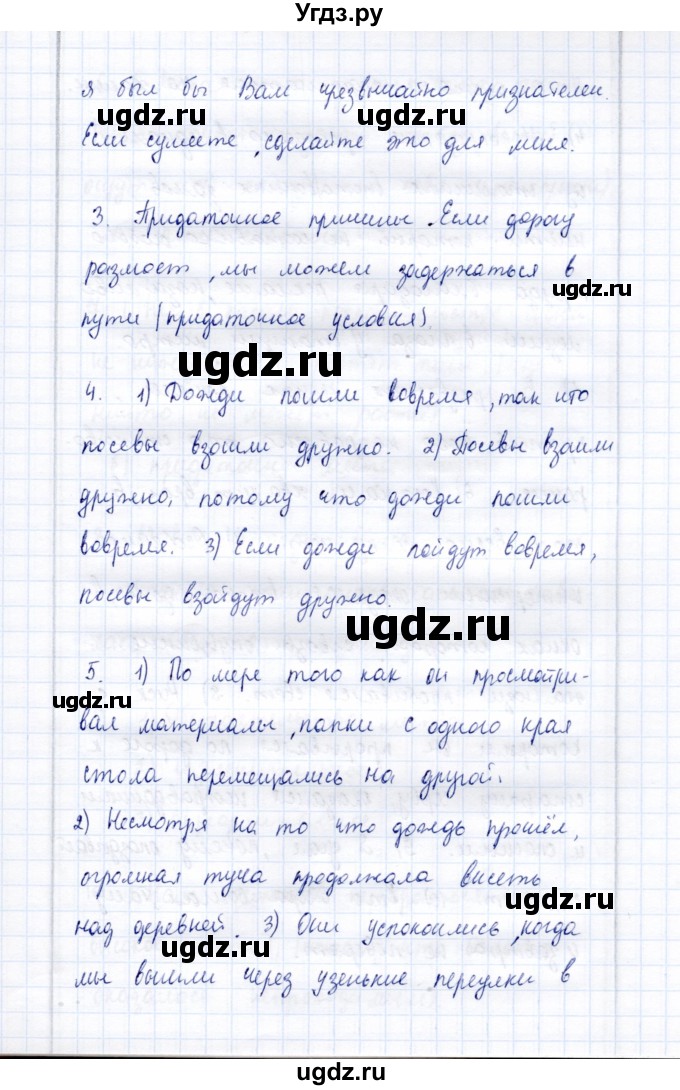 Угдз.ру
я был бы Вам чрезвычайно признателен.
ugdz.ru ugdz.ru
Если сумеете, сделайте это для меня.
3. Придаточное причины. Если дорогу
размоет, мы можем задержаться в
ugdz.ru
пути (придаточное условия).
ugdz.ru
4. 1) Дожди пошли вовремя, так что
посевы взошли дружно. 2) Посевы взошли
дружно, потому что дожди пошли
вовремя. 3) Если дожди пойдут вовремя,
посевы взойдут дружно.
ugdz.ru
5. 1) По мере того как он просматри-
ugdz.ru
вал материалы, папки с одного края
стола перемещались на другой.
2) Несмотря на то что дождь прошёл,
огромная туча продолжала висеть
ugdz.ru
над деревней. 3) Они успокоились, когда
ugdz.ru
мы вышли через узенькие переулки в
ugdz.ru